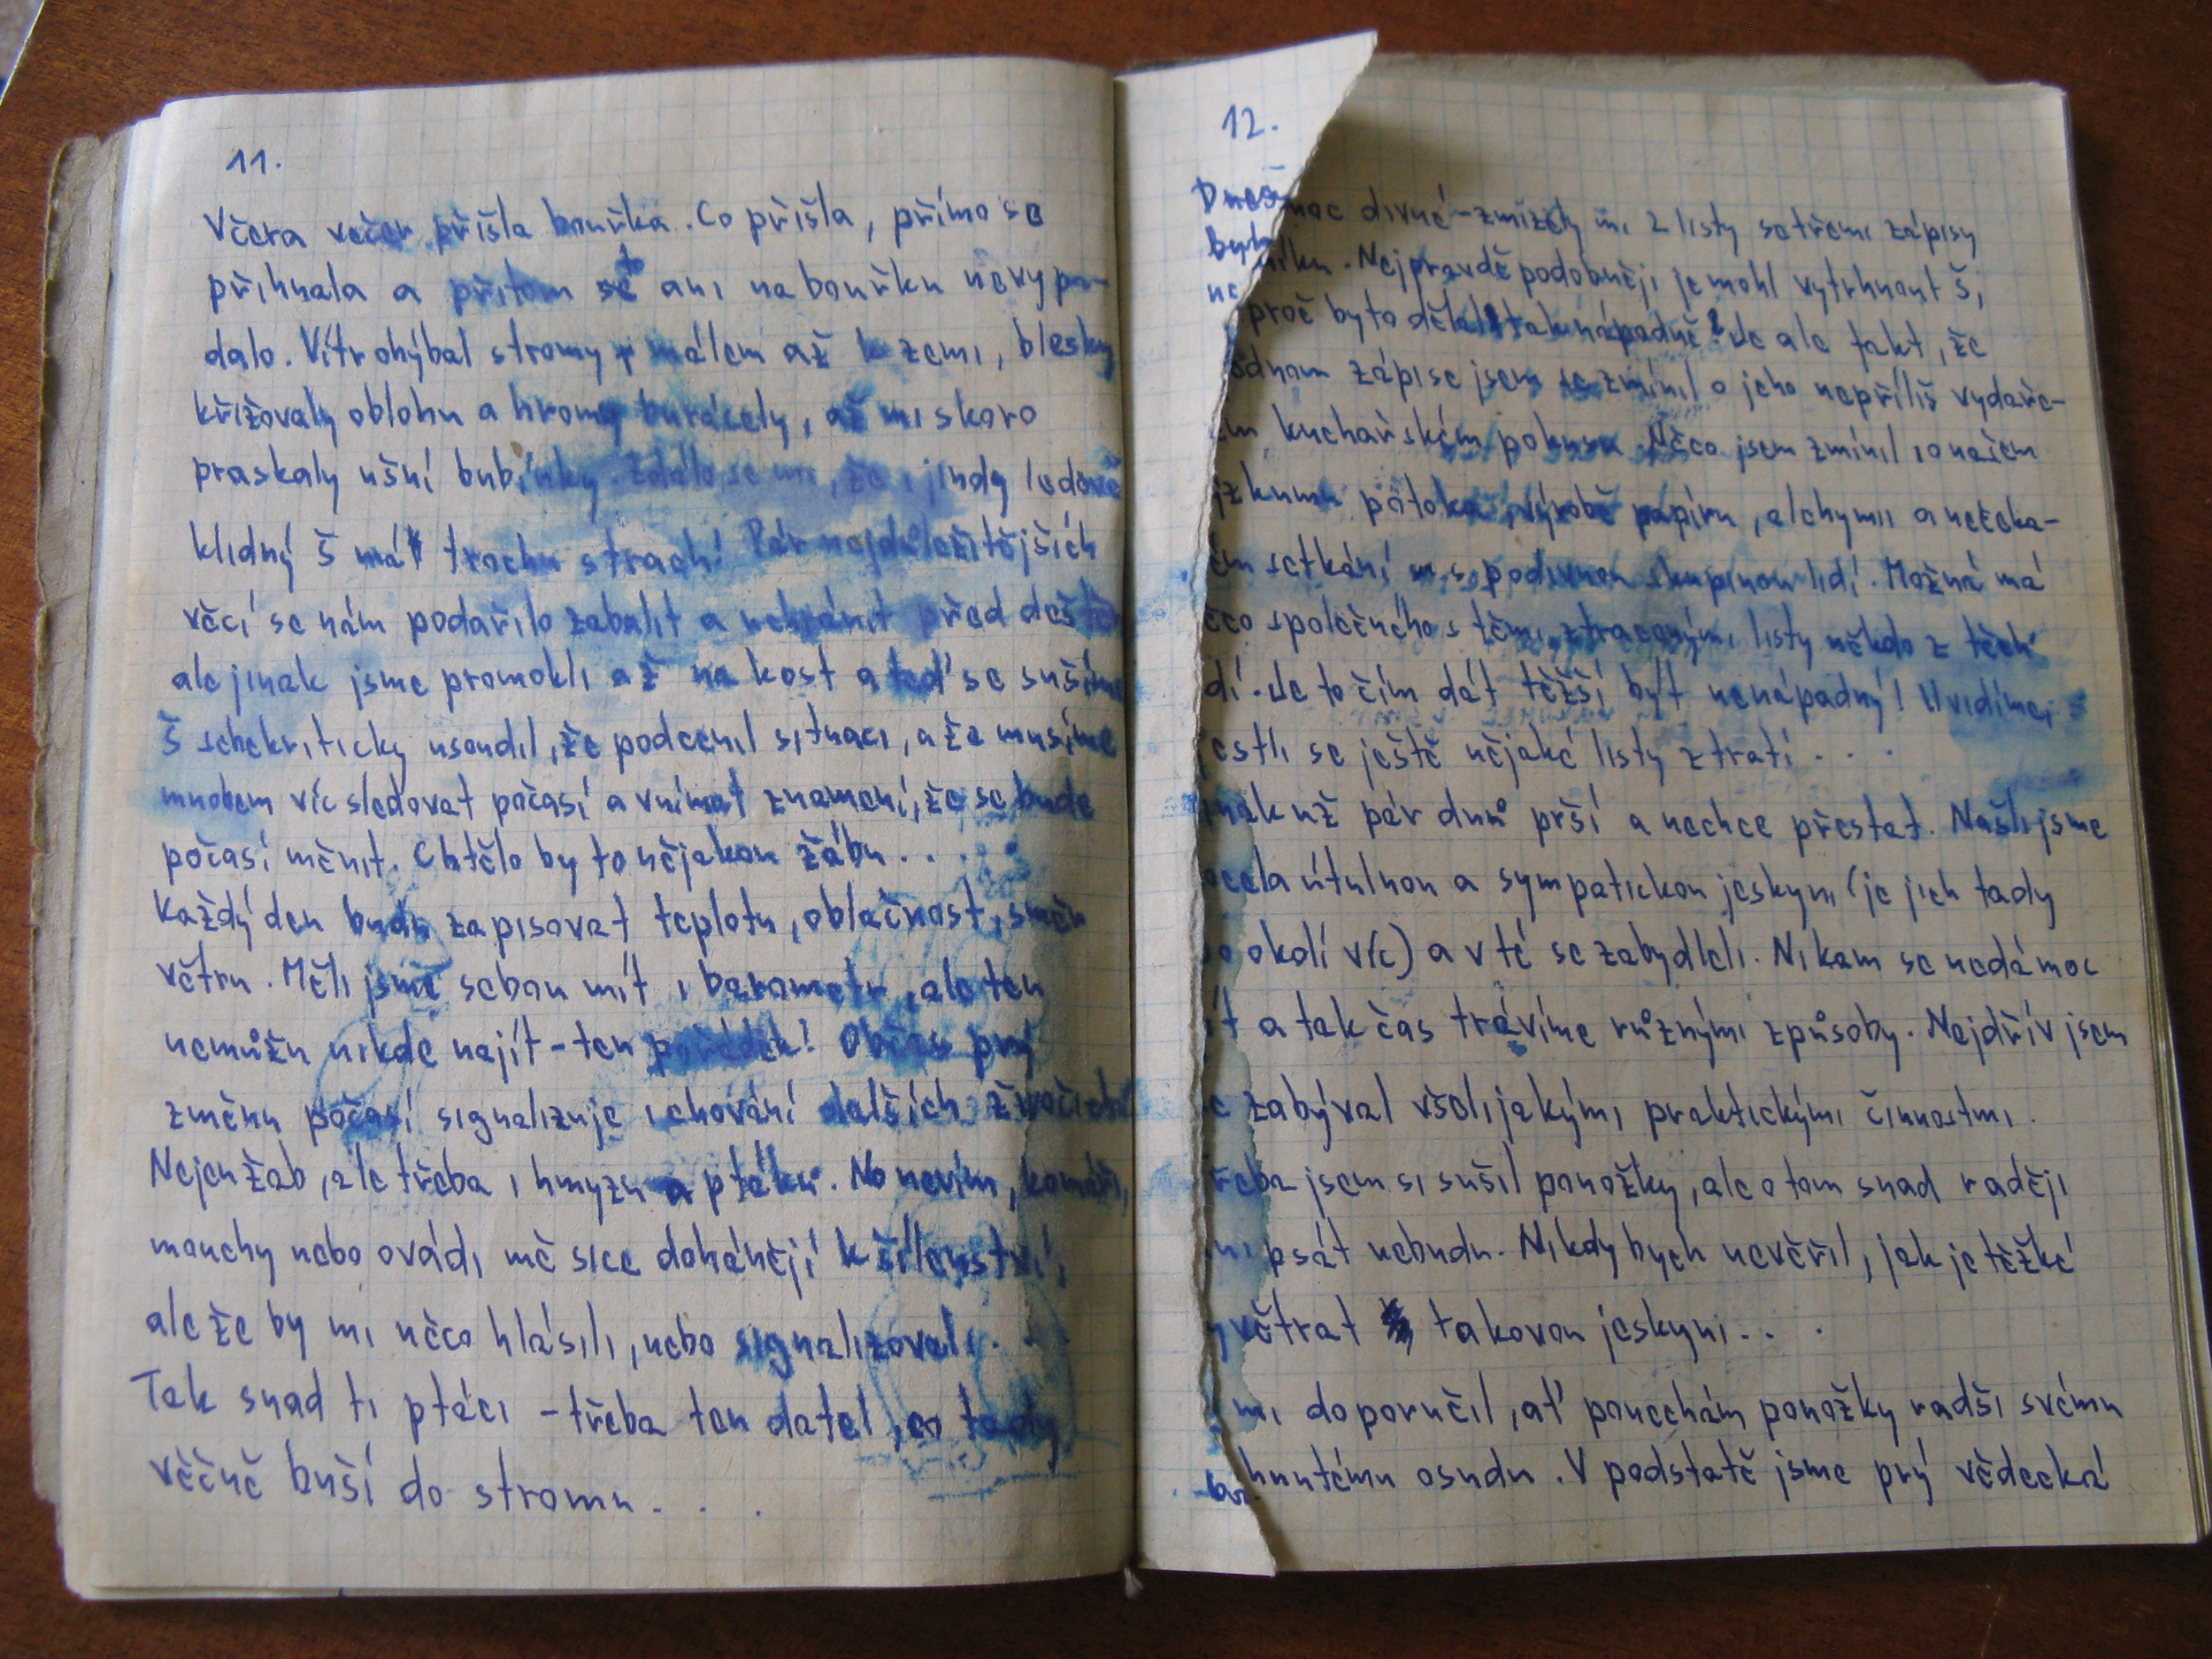 11.
Včera večer přišla bouřka. Co přišla, přímo se
přihnala a přitom to ani na bouřku nevypa-
dalo. Vítr ohýbal stromy málem až k zemi, blesky
křižovaly oblohu a hromy burácely, až mi skoro
praskaly ušní bubínky. Zdálo se mi, že i jindy ledově
klidný Š má trochu strach! Pár nejdůležitějších
věcí se nám podařilo zabalit a uchránit před deštěm
ale jinak jsme promokli až na kost a teď se sušíme
Š sebekriticky usoudil, že podcenil situaci, a že musíme
mnohem víc sledovat počasí a vnímat znamení, že se bude
počasí měnit. Chtělo by to nějakou žábu...
Každý den budu zapisovat teplotu, oblačnost, směr
větru. Měli jsme sebou mít i barometr, ale ten
nemůžu nikde najít - ten pořádek! Občas prý
změnu počasí signalizuje i chování dalších živočichů
Nejen žab, ale třeba i hmyzu a ptáků. No nevím, komáři,
mouchy nebo ovádi mě sice dohánějí k šílenství,
ale že by mi něco hlásili, nebo signalizovali...
Tak snad ti ptáci - třeba ten datel, co tady
věčně buší do stromu...
12.
Dneš
byl
ne
moc divné - zmizely mi 2 listy se třemi zápisy
níku. Nejpravděpodobněji je mohl vytrhnout Š,
proč by to dělal tak nápadně? Je ale fakt, že
jednom zápise jsem se zmínil o jeho nepříliš vydaře-
ém kuchařském pokusu. Něco jsem zmínil i o našem
ýzkumu potoka, výrobě papíru, alchymii a nečeka-
ém setkání s podivnou skupinou lidí. Možná má
ěco společného s těmi ztracenými listy někdo z těch
dí. Je to čím dát těžší být nenápadný! Uvidíme,
jestli se ještě nějaké listy ztratí...
inak už pár dnů prší a nechce přestat. Našli jsme
ocela útulnou a sympatickou jeskyni (je jich tady
po okolí víc) a v té se zabydleli. Nikam se nedá moc
ít a tak čas trávíme různými způsoby. Nejdřív jsem
e zabýval všelijakými praktickými činnostmi.
řeba jsem si sušil ponožky, ale o tom snad raději
ni psát nebudu. Nikdy bych nevěřil, jak je těžké
yvětrat takovou jeskyni...
mi doporučil, ať ponechám ponožky radši svému
hnutému osudu. V podstatě jsme prý vědecká